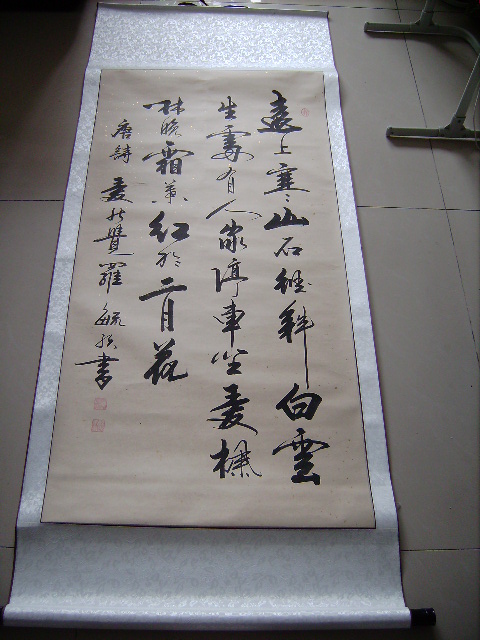 遠上寒山石徑斜白雲
生處有人家停車坐愛楓
林晚霜葉紅於二月花
唐詩 愛新覺羅 毓書